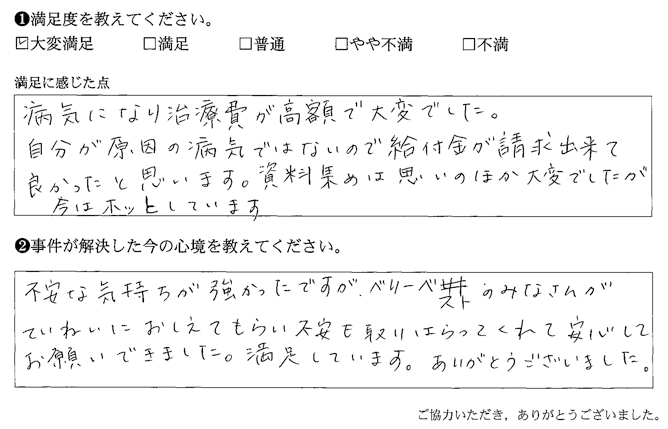 ❶満足度を教えてください。
☑大変満足 □満足 □普通 □やや不満 □不満
満足に感じた点
病気になり治療費が高額で大変でした。
自分が原因の病気ではないので給付金が請求出来て
良かったと思います。資料集めは思いのほか大変でしたが
今はホッとしています
❷事件が解決した今の心境を教えてください。
不安な気持ちが強かったですが、ベリーベスト のみなさんが
ていねいにおしえてもらい不安も取りはらってくれて安心して
お願いできました。満足しています。ありがとうございました。
ご協力いただき，ありがとうございました。